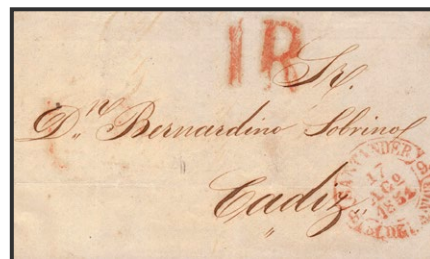 1R
Sr.
Dn. Bernardino Sobrino
Cadiz
SANTANDER
17
AGO
1854